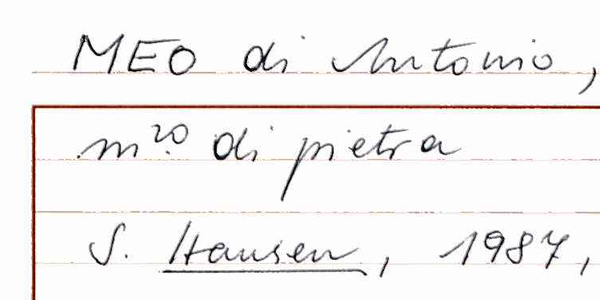 MEO di Antonio,
m.ro di pietra
S. Hansen, 1987,